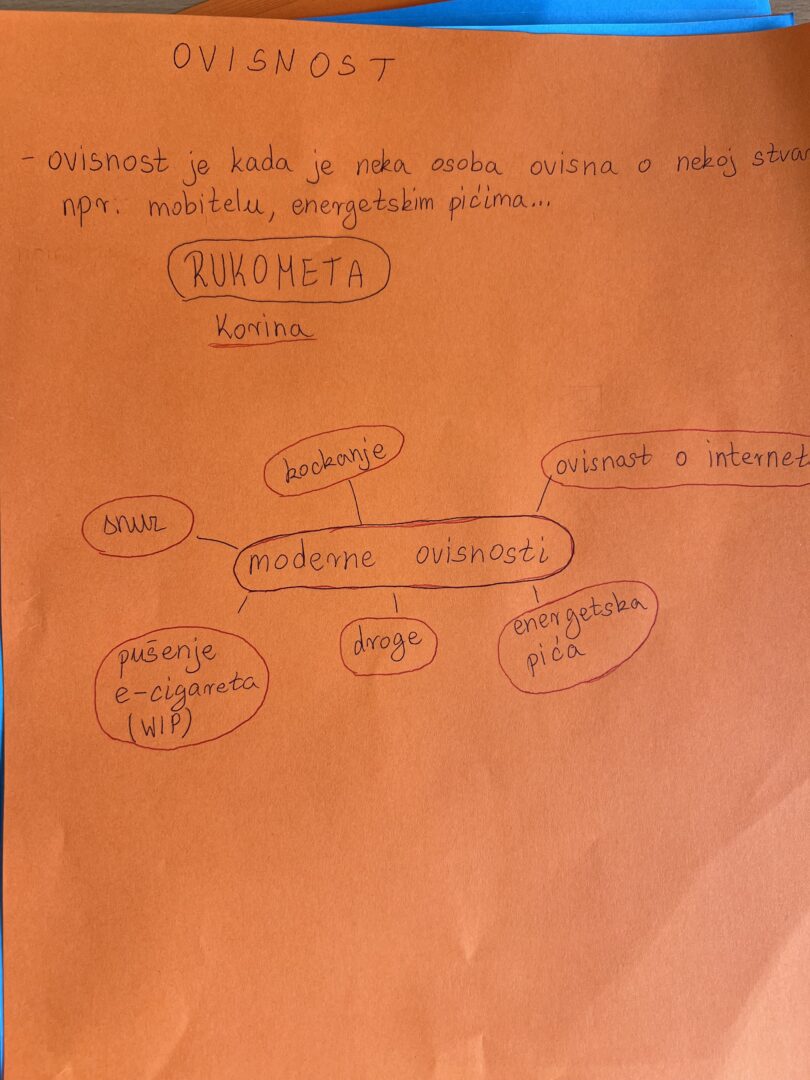 OVISNOST
- ovisnost je kada je neka osoba ovisna o nekoj stvar
npr. mobitelu, energetskim pićima...
RUKOMETA
Korina
kockanje
ovisnost o internet
snur
moderne ovisnosti
pušenje
e-cigareta
(WIP)
droge
energetska
pića